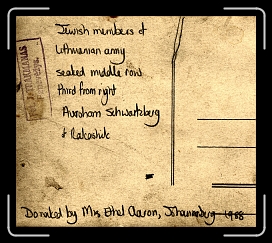 Jewish members of
Lithuanian army
seated middle row
third from right
Avroham Schwartzberg
of Rakoshik
Donated by Mrs Ethel Aaron, Johannesburg 1988